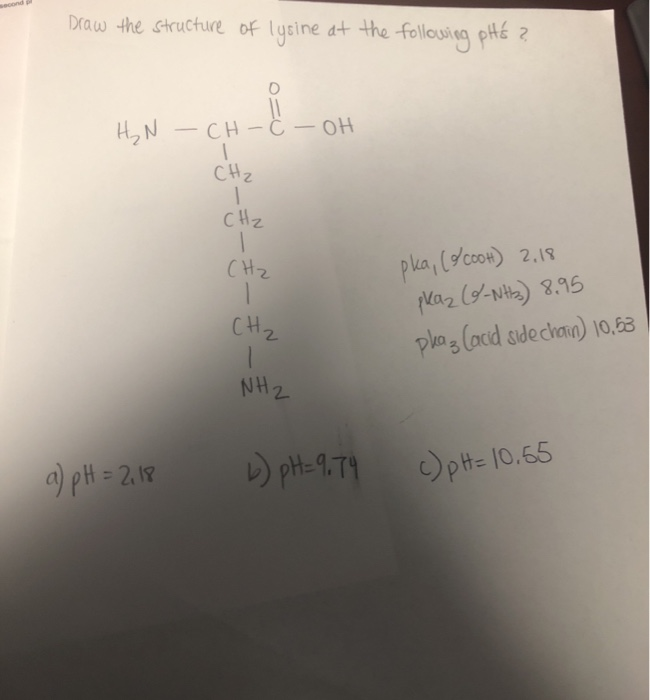 second pr
Draw the structure of lysine at the following pH's ?
O
||
H₂N — CH — C — OH
|
CH₂
|
CH₂
|
CH₂
|
CH₂
|
NH₂
pka₁ (α'COOH) 2.18
pka₂ (α'-NH₃) 8.95
pka₃ (acid side chain) 10.53
a) pH = 2.18 b) pH=9.74 c) pH= 10.55